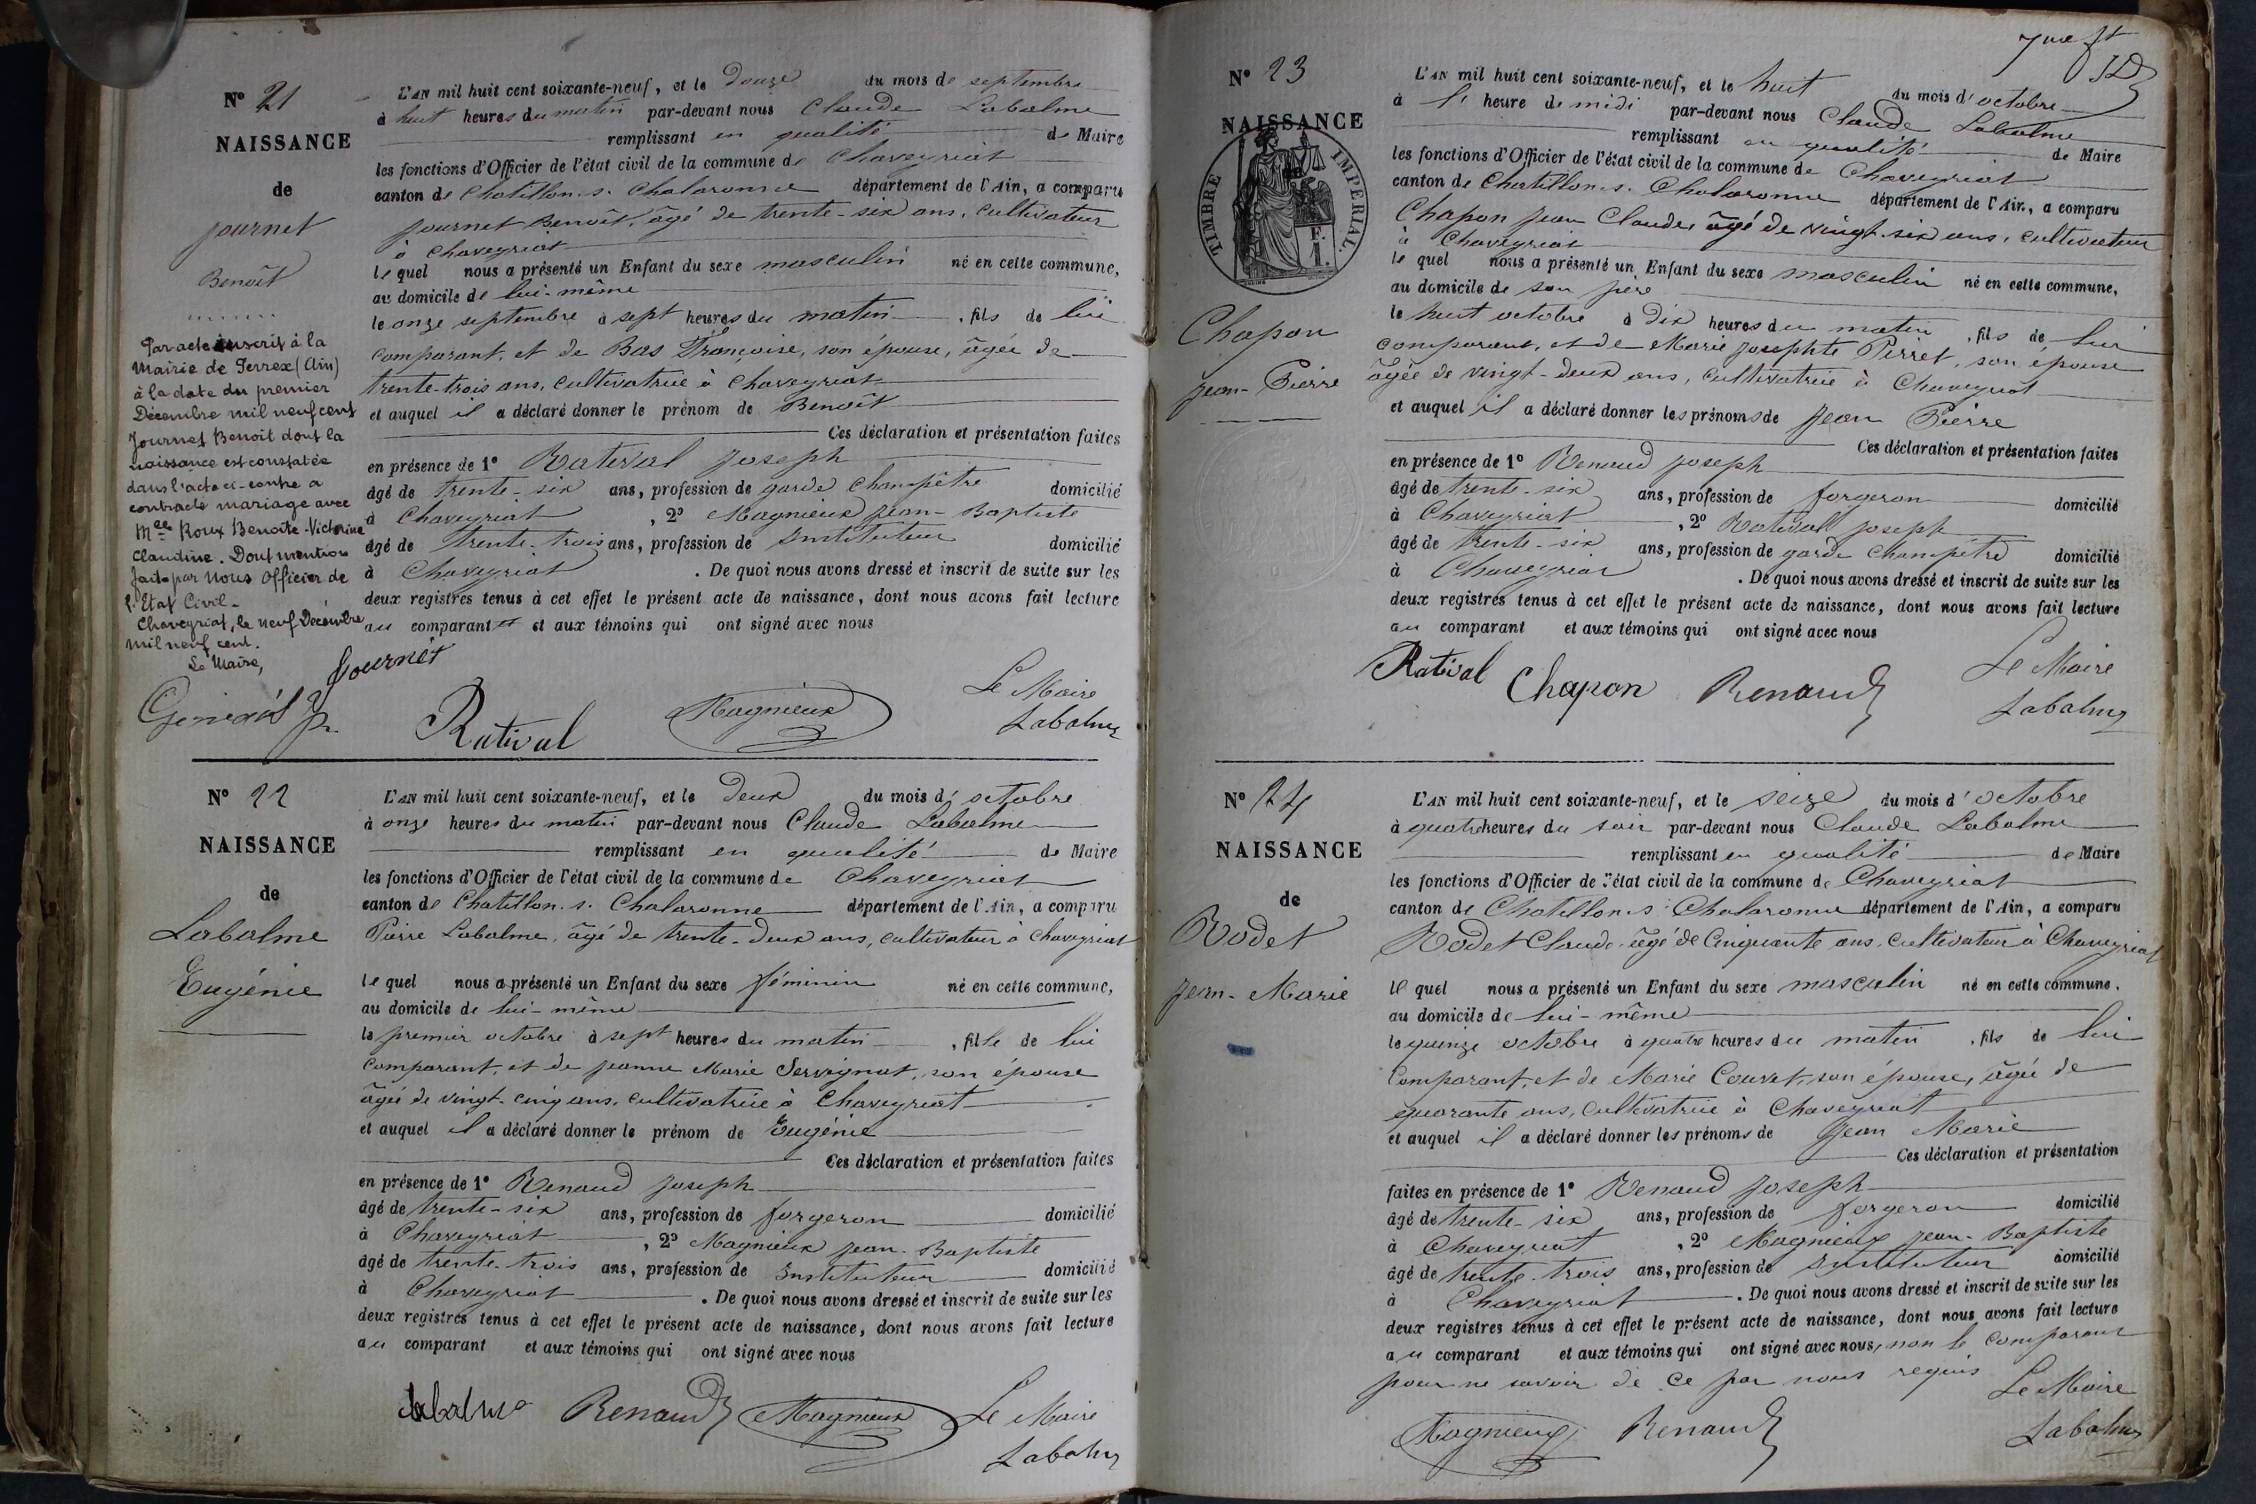 N° 21
NAISSANCE
de
Journet
Benoît
Par acte inscrit à la
Mairie de Perrex (Ain)
à la date du premier
Décembre mil neuf cent
Journet Benoit dont la
naissance est constatée
dans l'acte ci-contre a
contracté mariage avec
Mlle Roux Benoite-Victorine
Claudine. Dont mention
faite par Nous Officier de
l'Etat Civil.
Chaveyriat, le neuf Décembre
mil neuf cent.
Le Maire,
L'AN mil huit cent soixante-neuf, et le douze du mois de septembre
à huit heures du matin par-devant nous Claude Labalme
remplissant en qualité de Maire
les fonctions d'Officier de l'état civil de la commune de Chaveyriat
canton de Chatillon-s-Chalaronne département de l'Ain, a comparu
Journet Benoît, âgé de trente-six ans, cultivateur
à Chaveyriat
lequel nous a présenté un Enfant du sexe masculin né en cette commune,
au domicile de lui-même
le onze septembre à sept heures du matin, fils de lui
comparant, et de Bas Françoise, son épouse, âgée de
trente-trois ans, cultivatrice à Chaveyriat
et auquel il a déclaré donner le prénom de Benoît
Ces déclaration et présentation faites
en présence de 1° Ratival Joseph
âgé de trente-six ans, profession de garde champêtre domicilié
à Chaveyriat, 2° Magnieux Jean-Baptiste
âgé de trente-trois ans, profession de Instituteur domicilié
à Chaveyriat. De quoi nous avons dressé et inscrit de suite sur les
deux registres tenus à cet effet le présent acte de naissance, dont nous avons fait lecture
au comparant et et aux témoins qui ont signé avec nous
Journet
Ratival Magnieux Le Maire
Labalme
N° 22
NAISSANCE
de
Labalme
Eugénie
L'AN mil huit cent soixante-neuf, et le deux du mois d'octobre
à onze heures du matin par-devant nous Claude Labalme
remplissant en qualité de Maire
les fonctions d'Officier de l'état civil de la commune de Chaveyriat
canton de Chatillon-s-Chalaronne département de l'Ain, a comparu
Pierre Labalme, âgé de trente-deux ans, cultivateur à Chaveyriat
lequel nous a présenté un Enfant du sexe féminin né en cette commune,
au domicile de lui-même
le premier octobre à sept heures du matin, fille de lui
comparant, et de Jeanne Marie Servignat, son épouse
âgée de vingt-cinq ans, cultivatrice à Chaveyriat
et auquel il a déclaré donner le prénom de Eugénie
Ces déclaration et présentation faites
en présence de 1° Renaud Joseph
âgé de trente-six ans, profession de forgeron domicilié
à Chaveyriat, 2° Magnieux Jean-Baptiste
âgé de trente-trois ans, profession de Instituteur domicilié
à Chaveyriat. De quoi nous avons dressé et inscrit de suite sur les
deux registres tenus à cet effet le présent acte de naissance, dont nous avons fait lecture
au comparant et aux témoins qui ont signé avec nous
Labalme Renaud Magnieux Le Maire
Labalme
7me ft
N° 23
NAISSANCE
TIMBRE IMPÉRIAL.
F.
1.
Chapon
Jean-Pierre
L'AN mil huit cent soixante-neuf, et le huit du mois d'octobre
à l'heure de midi par-devant nous Claude Labalme
remplissant en qualité de Maire
les fonctions d'Officier de l'état civil de la commune de Chaveyriat
canton de Chatillon-s-Chalaronne département de l'Ain, a comparu
Chapon Jean Claude, âgé de vingt-six ans, cultivateur
à Chaveyriat
lequel nous a présenté un Enfant du sexe masculin né en cette commune,
au domicile de son père
le huit octobre à dix heures du matin, fils de lui
comparant, et de Marie Josephte Perret, son épouse
âgée de vingt-deux ans, cultivatrice à Chaveyriat
et auquel il a déclaré donner les prénoms de Jean Pierre
Ces déclaration et présentation faites
en présence de 1° Renaud Joseph
âgé de trente-six ans, profession de forgeron domicilié
à Chaveyriat, 2° Ratival Joseph
âgé de trente-six ans, profession de garde champêtre domicilié
à Chaveyriat. De quoi nous avons dressé et inscrit de suite sur les
deux registres tenus à cet effet le présent acte de naissance, dont nous avons fait lecture
au comparant et aux témoins qui ont signé avec nous
Ratival Chapon Renaud Le Maire
Labalme
N° 24
NAISSANCE
de
Rodet
Jean-Marie
L'AN mil huit cent soixante-neuf, et le seize du mois d'octobre
à quatre heures du soir par-devant nous Claude Labalme
remplissant en qualité de Maire
les fonctions d'Officier de l'état civil de la commune de Chaveyriat
canton de Chatillon-s-Chalaronne département de l'Ain, a comparu
Rodet Claude, âgé de cinquante ans, cultivateur à Chaveyriat
lequel nous a présenté un Enfant du sexe masculin né en cette commune,
au domicile de lui-même
le quinze octobre à quatre heures du matin, fils de lui
comparant, et de Marie Couvet, son épouse, âgée de
quarante ans, cultivatrice à Chaveyriat
et auquel il a déclaré donner les prénoms de Jean Marie
Ces déclaration et présentation
faites en présence de 1° Renaud Joseph
âgé de trente-six ans, profession de forgeron domicilié
à Chaveyriat, 2° Magnieux Jean-Baptiste
âgé de trente-trois ans, profession de Instituteur domicilié
à Chaveyriat. De quoi nous avons dressé et inscrit de suite sur les
deux registres tenus à cet effet le présent acte de naissance, dont nous avons fait lecture
au comparant et aux témoins qui ont signé avec nous, non le comparant
pour ne savoir de ce par nous requis
Magnieux Renaud Le Maire
Labalme